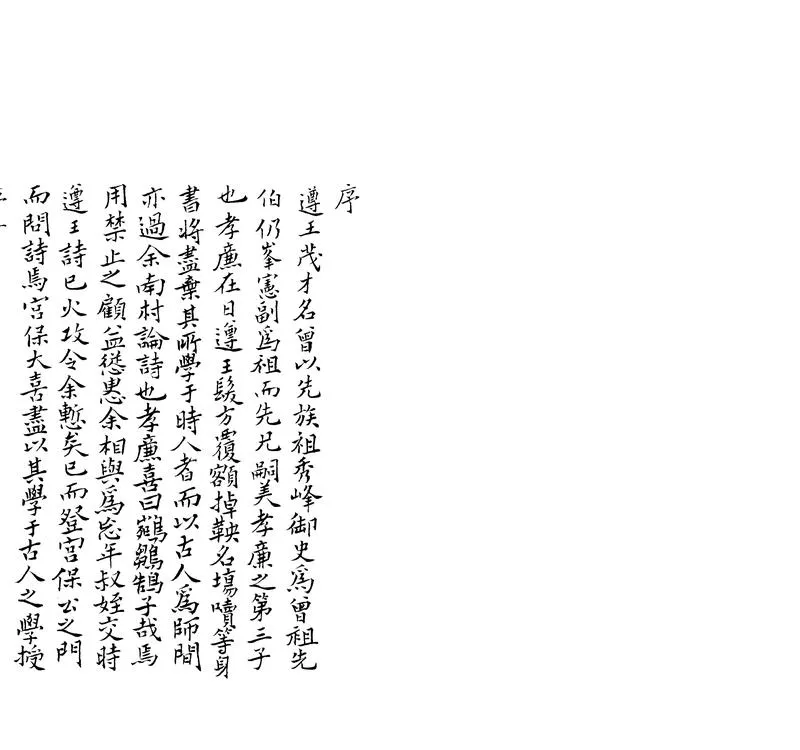 序
遵王茂才名曾以先族祖秀峰御史爲曾祖先
伯仍峯憲副爲祖而先兄嗣美孝廉之第三子
也孝廉在日遵王髮方覆額掉鞅名塲嘖等身
書將盡棄其所學于時人者而以古人爲師間
亦過余南村論詩也孝廉喜曰鵷鶵鵠子哉焉
用禁止之顧益慫恿余相與爲忘年叔姪交時
遵王詩已火攻令余慙矣已而登宮保公之門
而問詩焉宮保大喜盡以其學于古人之學授